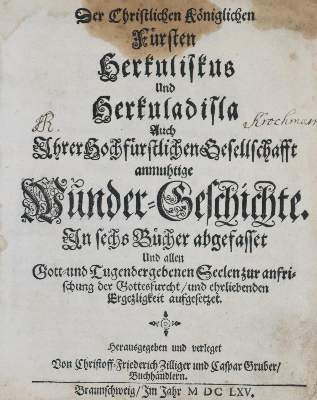 Der Christlichen Königlichen
Fürsten
Herkuliskus
Und
Herkuladisla
Auch
Ihrer Hochfürstlichen Gesellschafft
anmuhtige
Wunder-Geschichte.
In sechs Bücher abgefasset
Und allen
Gott-und Tugendergebenen Seelen zur anfri-
schung der Gottesfurcht/ und ehrliebenden
Ergezligkeit aufgesetzet.
Herausgegeben und verleget
Von Christoff-Friederich Zilliger und Caspar Gruber/
Buchhändlern.
Braunschweig/ Im Jahr M DC LXV.